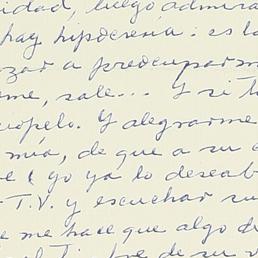 idad, luego admira
hay hipocresía: es la
zar a preocuparm
me, sale... Y si t
copelo. Y alegrarme
mía, de que a su
e (yo ya lo deseab
T.V. y escuchar su
e me hace que algo d
de su v